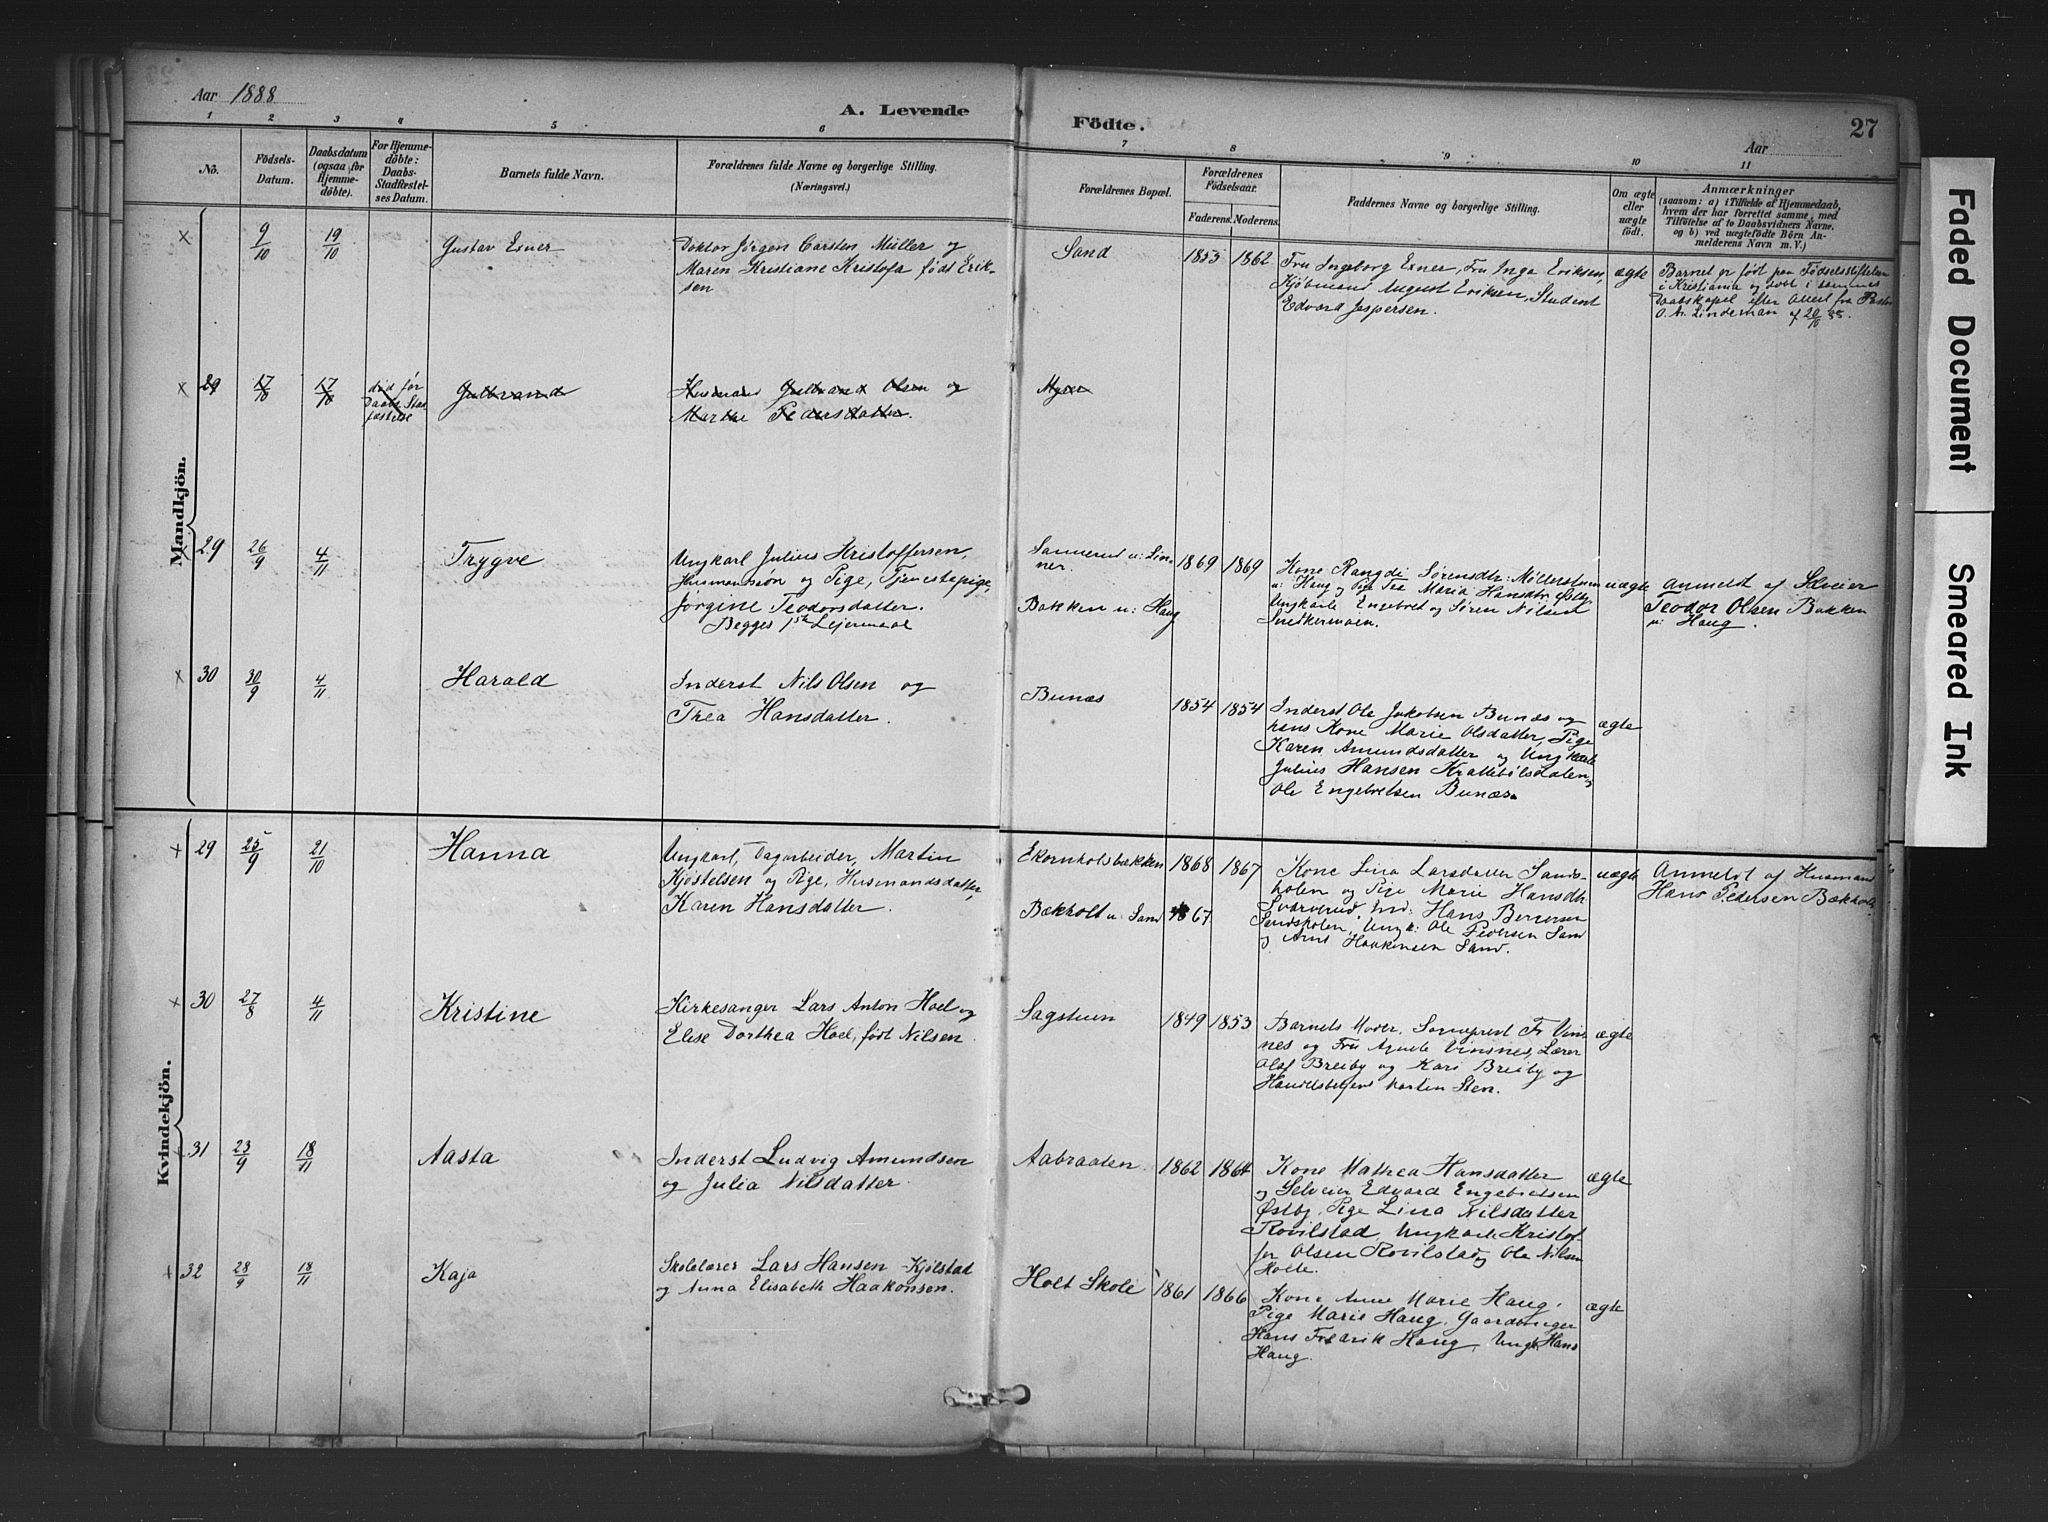 Aar 1888
A. Levende
Födte.
Aar
27
1 2 3 4 5 6 7 8 9 10 11
No.
Födsels-
Datum.
Daabsdatum
(ogsaa for
Hjemme-
döbte).
For Hjemme-
döbte:
Daabs-
Stadfæstel-
ses Datum.
Barnets fulde Navn.
Forældrenes fulde Navne og borgerlige Stilling.
(Næringsvei.)
Forældrenes Bopæl.
Forældrenes
Födselsaar.
Faderens. Moderens.
Faddernes Navne og borgerlige Stilling.
Om ægte
eller
uægte
födt.
Anmærkninger
(saasom: a) i Tilfælde af Hjemmedaab,
hvem der har forrettet samme, med
Tilföielse af to Daabsvidners Navne.
og b) ved uægtefödte Börn An-
melderens Navn m. V.)
Mandkjön.
× 9/10 19/10 Gustav Exner
Doktor Jörgen Carsten Müller og
Maren Kristiane Kristofa født Erik-
sen
Sand 1853 1862
Fru Ingeborg Exner, Fru Inga Eriksen,
Kjøbmand August Eriksen, Student
Edvard Jespersen.
ægte
Barnet er født paa Fødselsstiftelsen
i Kristiania og døbt i sammes
Daabskapel efter Attest fra Pastor
Lindeman af 20/10 88.
× 29 17/10 17/10
død før
Daabs Stad
fæstelse
Gulbrand
Husmand Gulbrand Olsen og
Marthe Pedersdatter.
× 29 26/9 4/11 Trygve
Ungkarl Julius Kristoffersen,
Husmandssøn og Pige, Tjenestepige,
Jørgine Teodorsdatter.
Begges 1ste Leiermaal
Sannerud u: Lin-
ner.
Bakken u: Haug
1869 1869
Kone Rangdi Sørensdtr: Møllerstuen
u: Haug og Pige Maria Hansdtr.
Ungkarle Engebret og Søren Nilsen
Snedkermoen.
uægte
Anmeldt af Selveier
Teodor Olsen Bakken
u: Haug.
× 30 30/9 4/11 Harald
Inderst Nils Olsen og
Thea Hansdatter.
Bunæs 1854 1854
Inderst Ole Jakobsen Bunæs og
hans Kone Marie Olsdatter, Pige
Karen Amundsdatter og Ungkarle
Julius Hansen Krattebølsdalen,
Ole Engebretsen Bunæs.
ægte
Kvindekjön.
× 29 25/9 21/10 Hanna
Ungkarl, Dagarbeider, Martin
Kjøstelsen og Pige, Husmandsdatter,
Karen Hansdatter.
Ekornholsbakken
Bækholt u: Sand
1868 1867
1867
Kone Lina Larsdatter Sands-
holen og Pige Marie Hansdtr
Hans
Ungk: Ole Pedersen Sand
og Haakensen Sand.
uægte
Anmeldt af Husmand
Hans Pedersen Bækholt
× 30 27/8 4/11 Kristine
Kirkesanger Lars Anton Hoel og
Elise Dorthea Hoel, født Nilsen.
Sagstuen 1849 1853
Barnets Moder, Sogneprest Fr Vins-
nes og Fru Vinsnes, Lærer
Olaf Breiby og Kari Breiby og
Handelsbetjent Martin Sten.
ægte
31 23/9 18/11 Aasta
Inderst Ludvig Amundsen
og Julia Nilsdatter.
Aabraaten 1862 1864
Kone Mathea Hansdatter
og Selveier Edvard Engebretsen
Østby, Pige Lina Nilsdatter
Rovilstad, Ungkarle Kristof-
fer Olsen Rovilstad og Ole Nilsen
Holte.
ægte
× 32 28/9 18/11 Kaja
Skolelærer Lars Hansen Kjølstad
og Anna Elisabeth Haakonsen.
Holt Skole 1861 1866
Kone Anne Marie Haug,
Pige Marie Haug, Gaardbruger
Hans Fredrik Haug, Ungk. Hans
Haug.
ægte
Faded Document
Smeared Ink